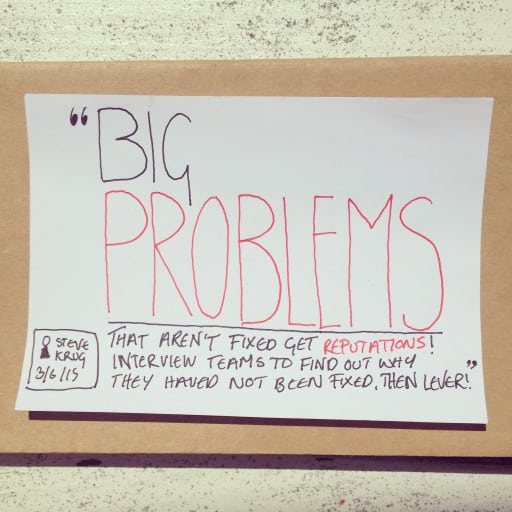 “BIG
PROBLEMS
THAT AREN'T FIXED GET REPUTATIONS!
INTERVIEW TEAMS TO FIND OUT WHY
THEY HAVED NOT BEEN FIXED. THEN LEVER!”
STEVE
KRUG
3/6/15